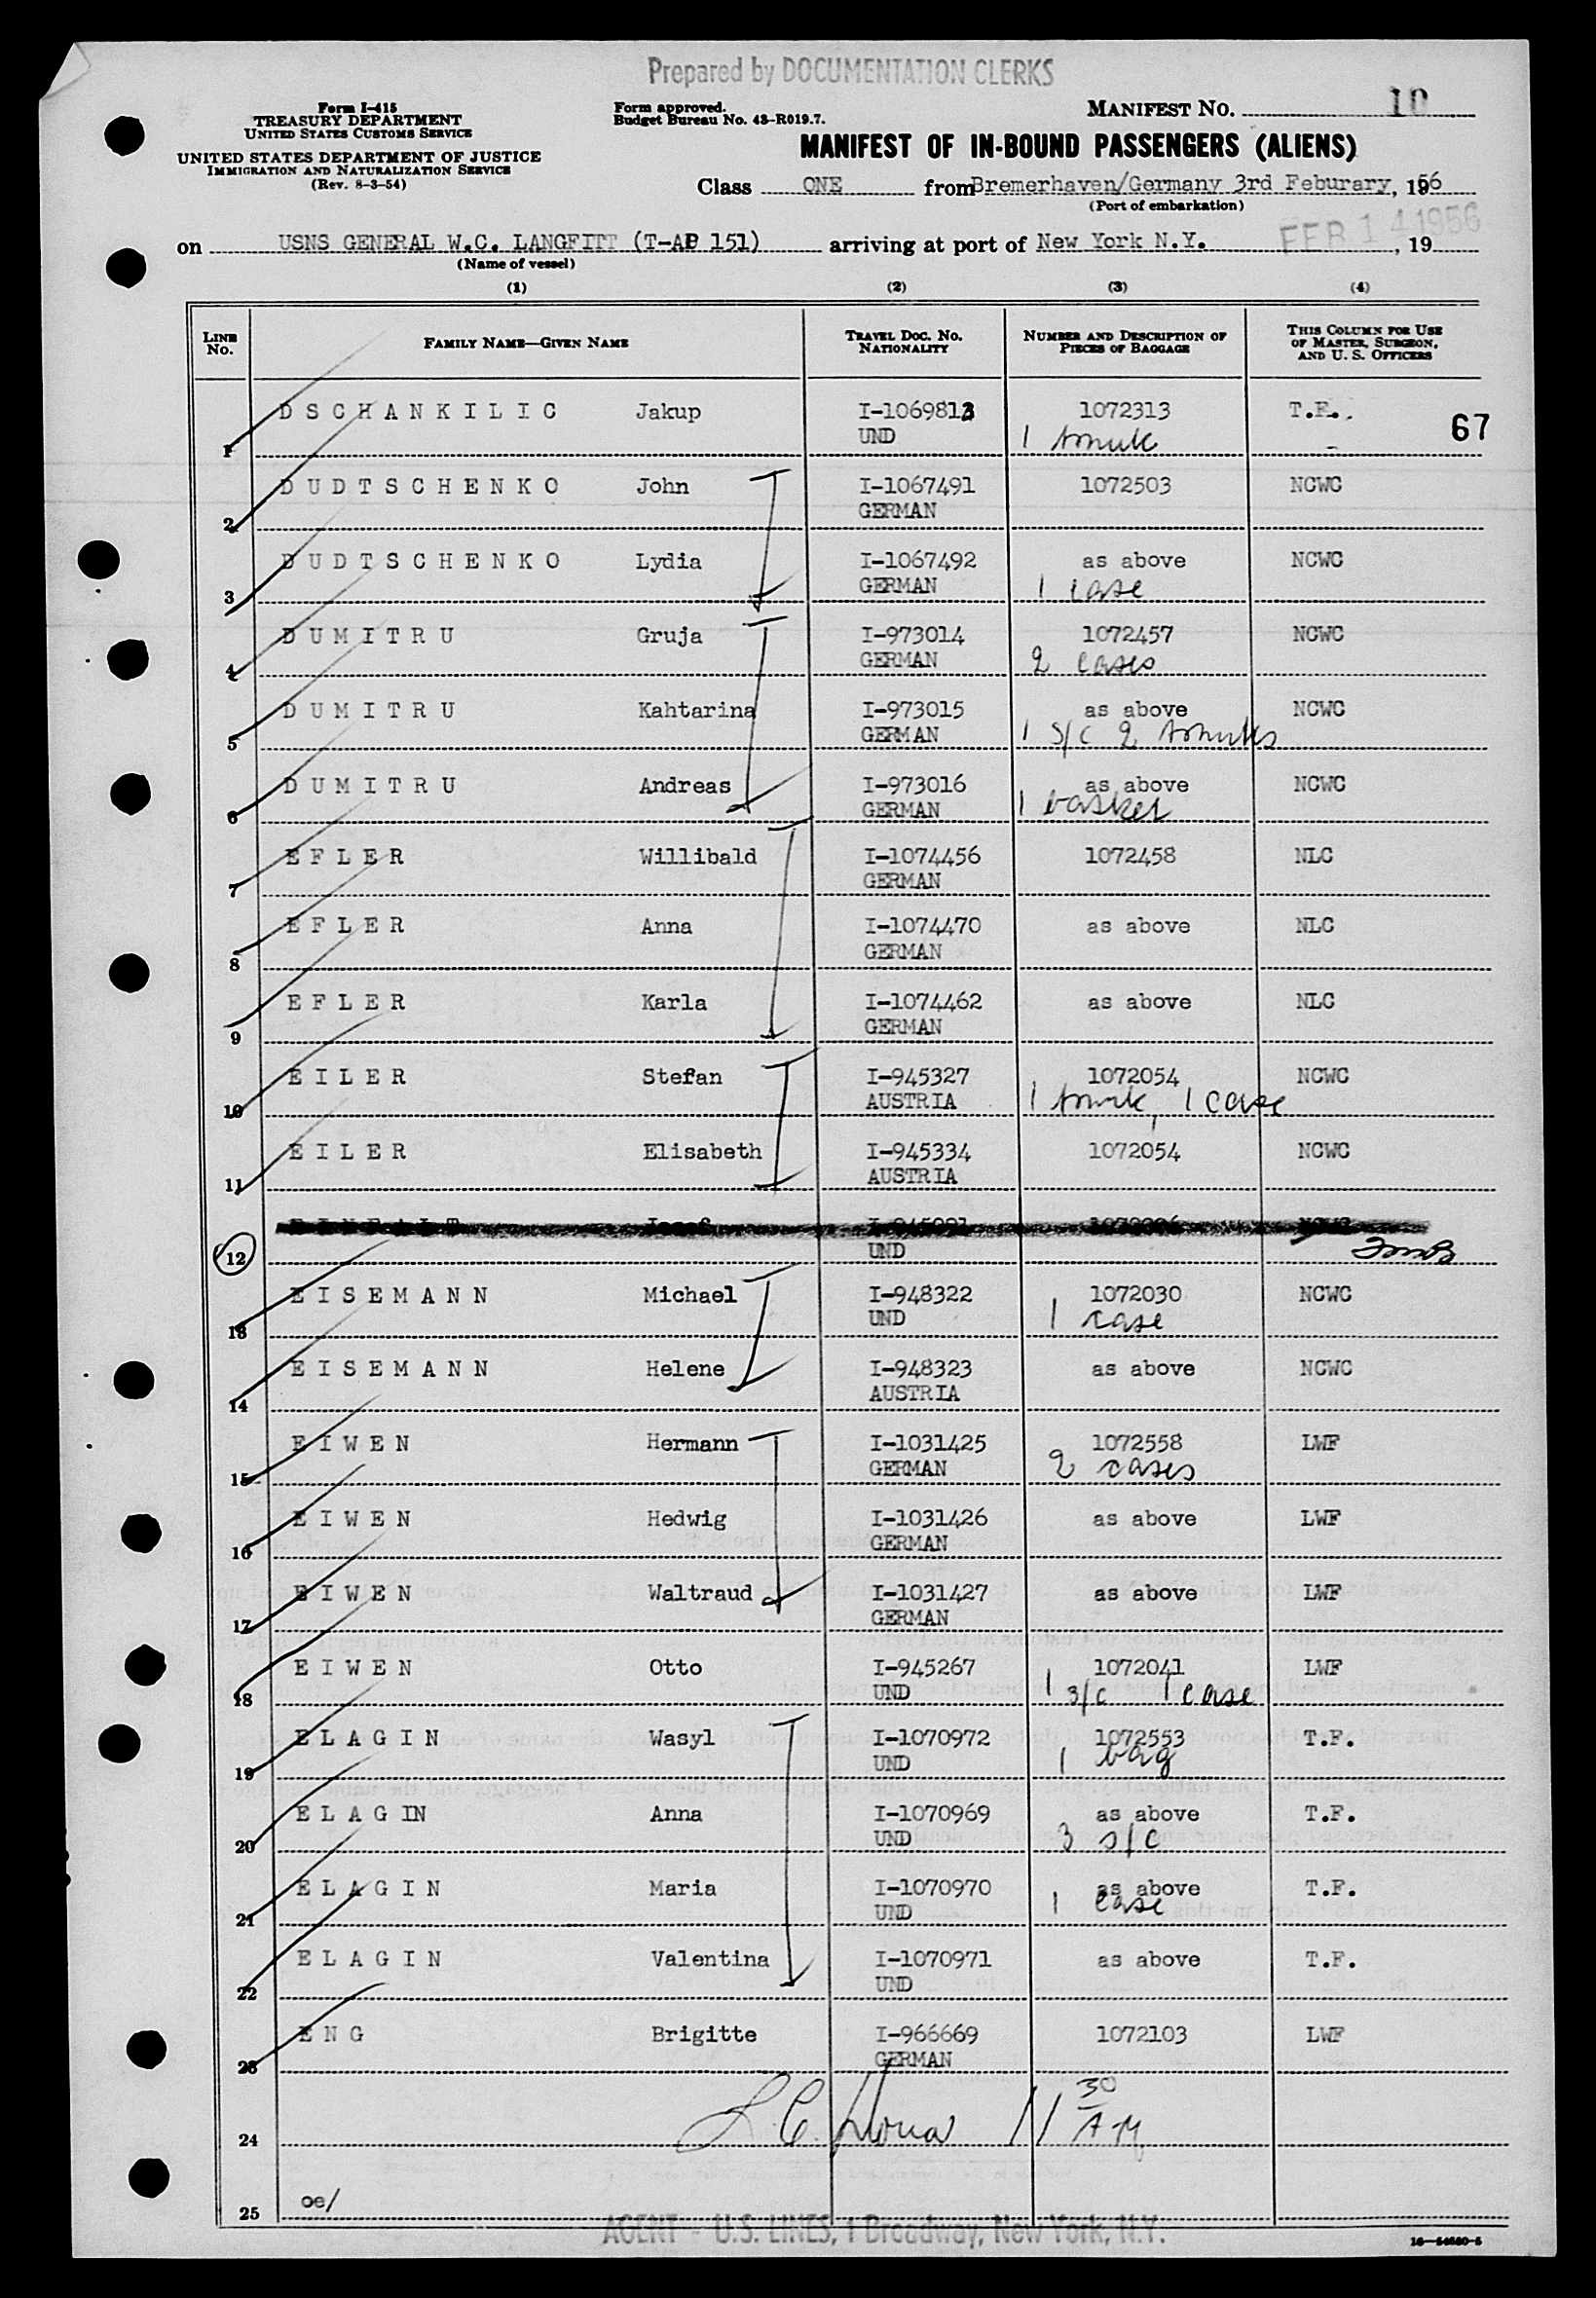 Prepared by DOCUMENTATION CLERKS
Form I-415
TREASURY DEPARTMENT
UNITED STATES CUSTOMS SERVICE
UNITED STATES DEPARTMENT OF JUSTICE
IMMIGRATION AND NATURALIZATION SERVICE
(Rev. 8-3-54)
Form approved.
Budget Bureau No. 43-R019.7.
MANIFEST NO. 10
MANIFEST OF IN-BOUND PASSENGERS (ALIENS)
Class ONE from Bremerhaven/Germany 3rd Feburary, 1956
(Port of embarkation)
on USNS GENERAL W.C. LANGFITT (T-AP 151) arriving at port of New York N.Y. FEB 14 1956, 19
(Name of vessel)
(1) (2) (3) (4)
LINE No. FAMILY NAME—GIVEN NAME TRAVEL DOC. NO. NATIONALITY NUMBER AND DESCRIPTION OF PIECES OF BAGGAGE THIS COLUMN FOR USE OF MASTER, SURGEON, AND U. S. OFFICERS
1 DSCHANKILIC Jakup I-1069813 1072313 T.F. 67
UND 1 trunk
2 DUDTSCHENKO John I-1067491 1072503 NCWC
GERMAN
3 DUDTSCHENKO Lydia I-1067492 as above NCWC
GERMAN 1 case
4 DUMITRU Gruja I-973014 1072457 NCWC
GERMAN 2 cases
5 DUMITRU Kahtarina I-973015 as above NCWC
GERMAN 1 s/c 2 trunks
6 DUMITRU Andreas I-973016 as above NCWC
GERMAN 1 basket
7 EFLER Willibald I-1074456 1072458 NLC
GERMAN
8 EFLER Anna I-1074470 as above NLC
GERMAN
9 EFLER Karla I-1074462 as above NLC
GERMAN
10 EILER Stefan I-945327 1072054 NCWC
AUSTRIA 1 trunk, 1 case
11 EILER Elisabeth I-945334 1072054 NCWC
AUSTRIA
12 UND
13 EISEMANN Michael I-948322 1072030 NCWC
UND 1 case
14 EISEMANN Helene I-948323 as above NCWC
AUSTRIA
15 EIWEN Hermann I-1031425 1072558 LWF
GERMAN 2 cases
16 EIWEN Hedwig I-1031426 as above LWF
GERMAN
17 EIWEN Waltraud I-1031427 as above LWF
GERMAN
18 EIWEN Otto I-945267 1072041 LWF
UND 1 s/c 1 case
19 ELAGIN Wasyl I-1070972 1072553 T.F.
UND 1 bag
20 ELAGIN Anna I-1070969 as above T.F.
UND 3 s/c
21 ELAGIN Maria I-1070970 as above T.F.
UND 1 case
22 ELAGIN Valentina I-1070971 as above T.F.
UND
23 ENG Brigitte I-966669 1072103 LWF
GERMAN
24 11 30 AM
25 oe/
AGENT - U.S. LINES, 1 Broadway, New York, N.Y.